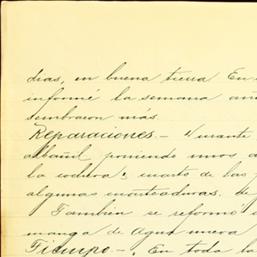 dias, en buena tierra En
informé la semana an
sembraron más.
Reparaciones.- Durante
albañil poniendo unos a
la cochera, cuarto de las
algunas
Tambien se reformó
manga de Agua nueva
Tiempo-. En toda la